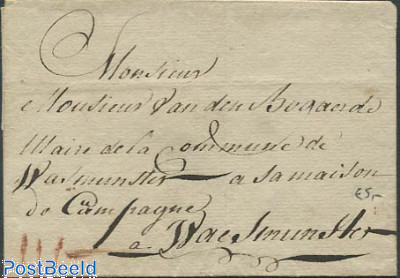 Monsieur
Monsieur Van den Bogaerde
Maire de la Commune de
Wasmunster a sa maison
de Campagne
a Waesmunster
€5,-
PostBeeld